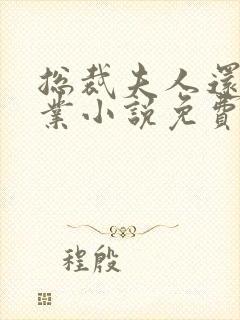 总裁夫人還
業小說免費
程殷